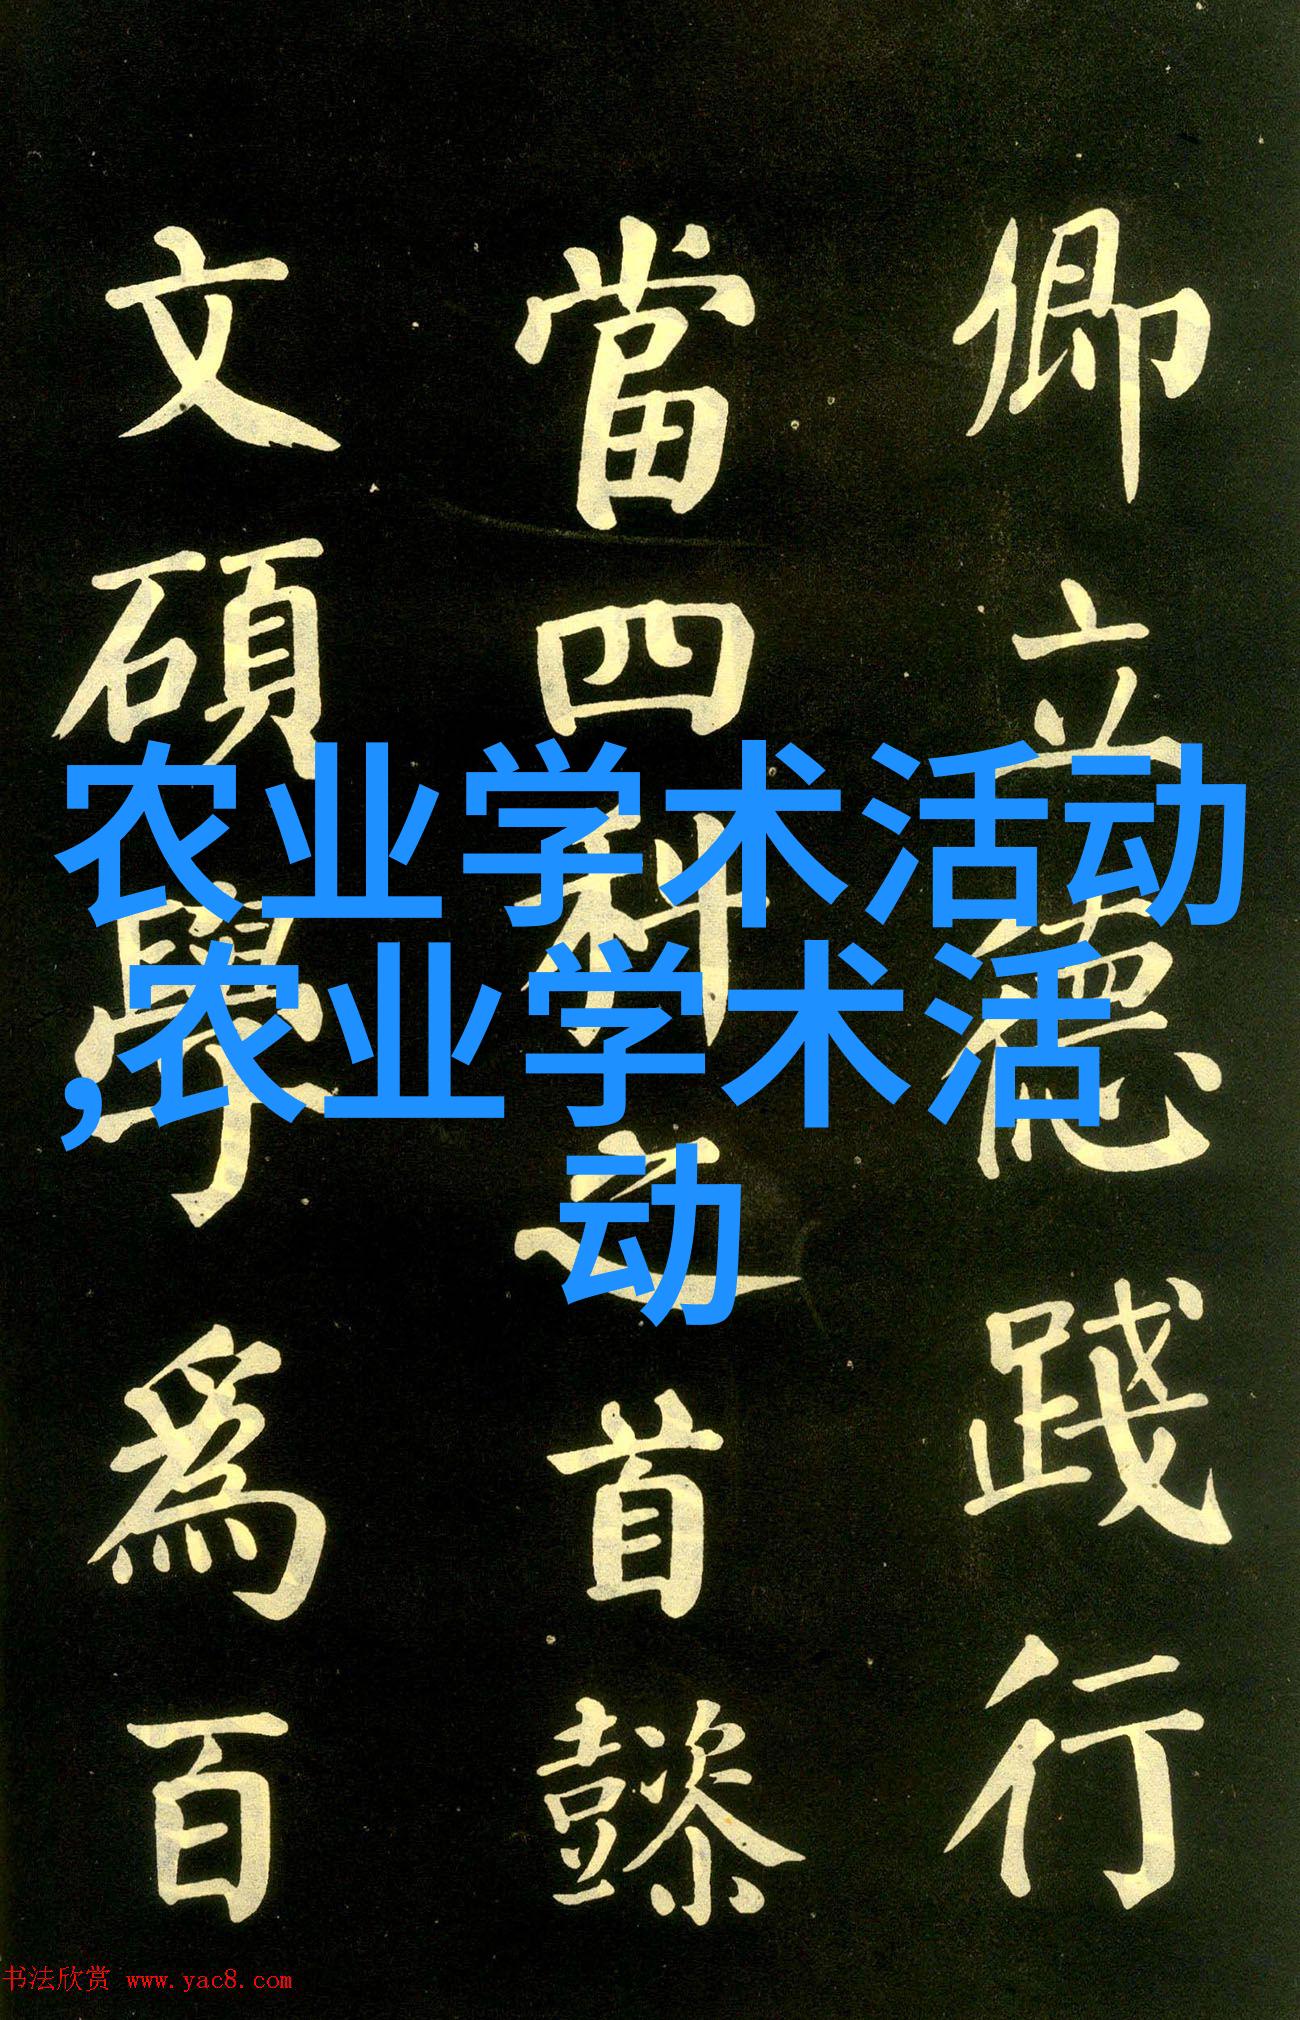 卿立德踐行
當四科之首懿
文碩學為百
农业学术活动
,农业学术活
动
书法欣赏 www.yac8.com